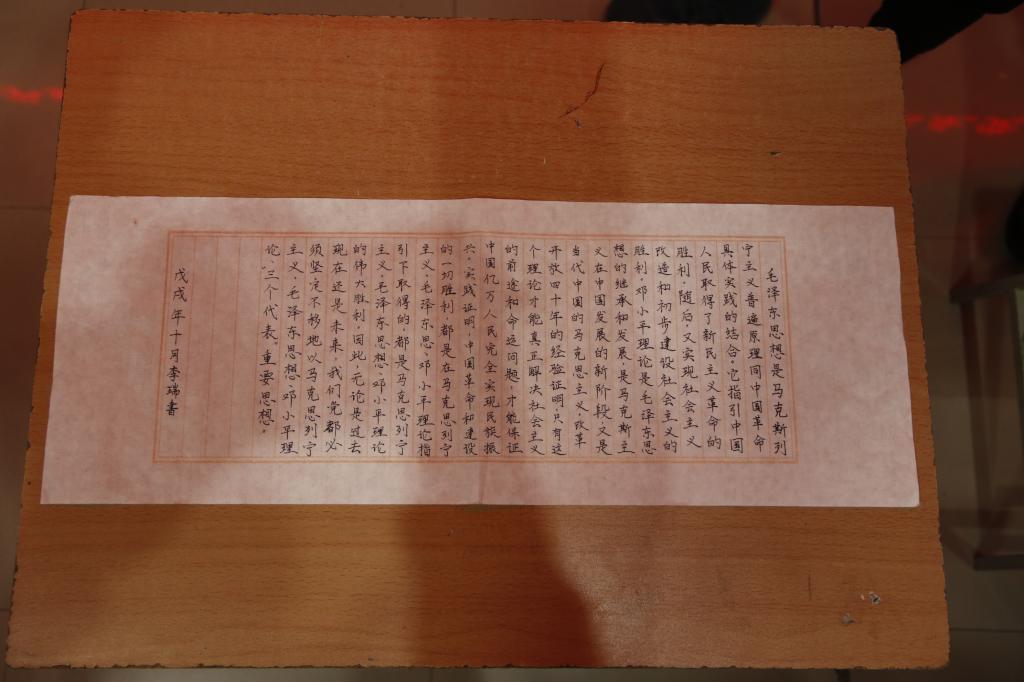 毛泽东思想是马克斯列
宁主义普遍原理同中国革命
具体实践的结合。它指引中国
人民取得了新民主义革命的
胜利,随后,又实现社会主义
改造和初步建设社会主义的
胜利,邓小平理论是毛泽东思
想的继承和发展是马克斯主
义在中国发展的新阶段,又是
当代中国的马克思主义,改革
开放四十年的经验证明,只有这
个理论才能真正解决社会主义
的前途和命运问题,才能保证
中国亿万人民完全实现民族振
兴,实践证明,中国革命和建设
的一切胜利,都是在马克思列宁
主义、毛泽东思想、邓小平理论指
引下取得的,都是马克思列宁
主义、毛泽东思想、邓小平理论
的伟大胜利,因此,无论是过去
现在还是未来,我们党都必
须坚定不移地以马克思列宁
主义、毛泽东思想、邓小平理
论、三个代表,重要思想。
戊戌年十月李瑞书